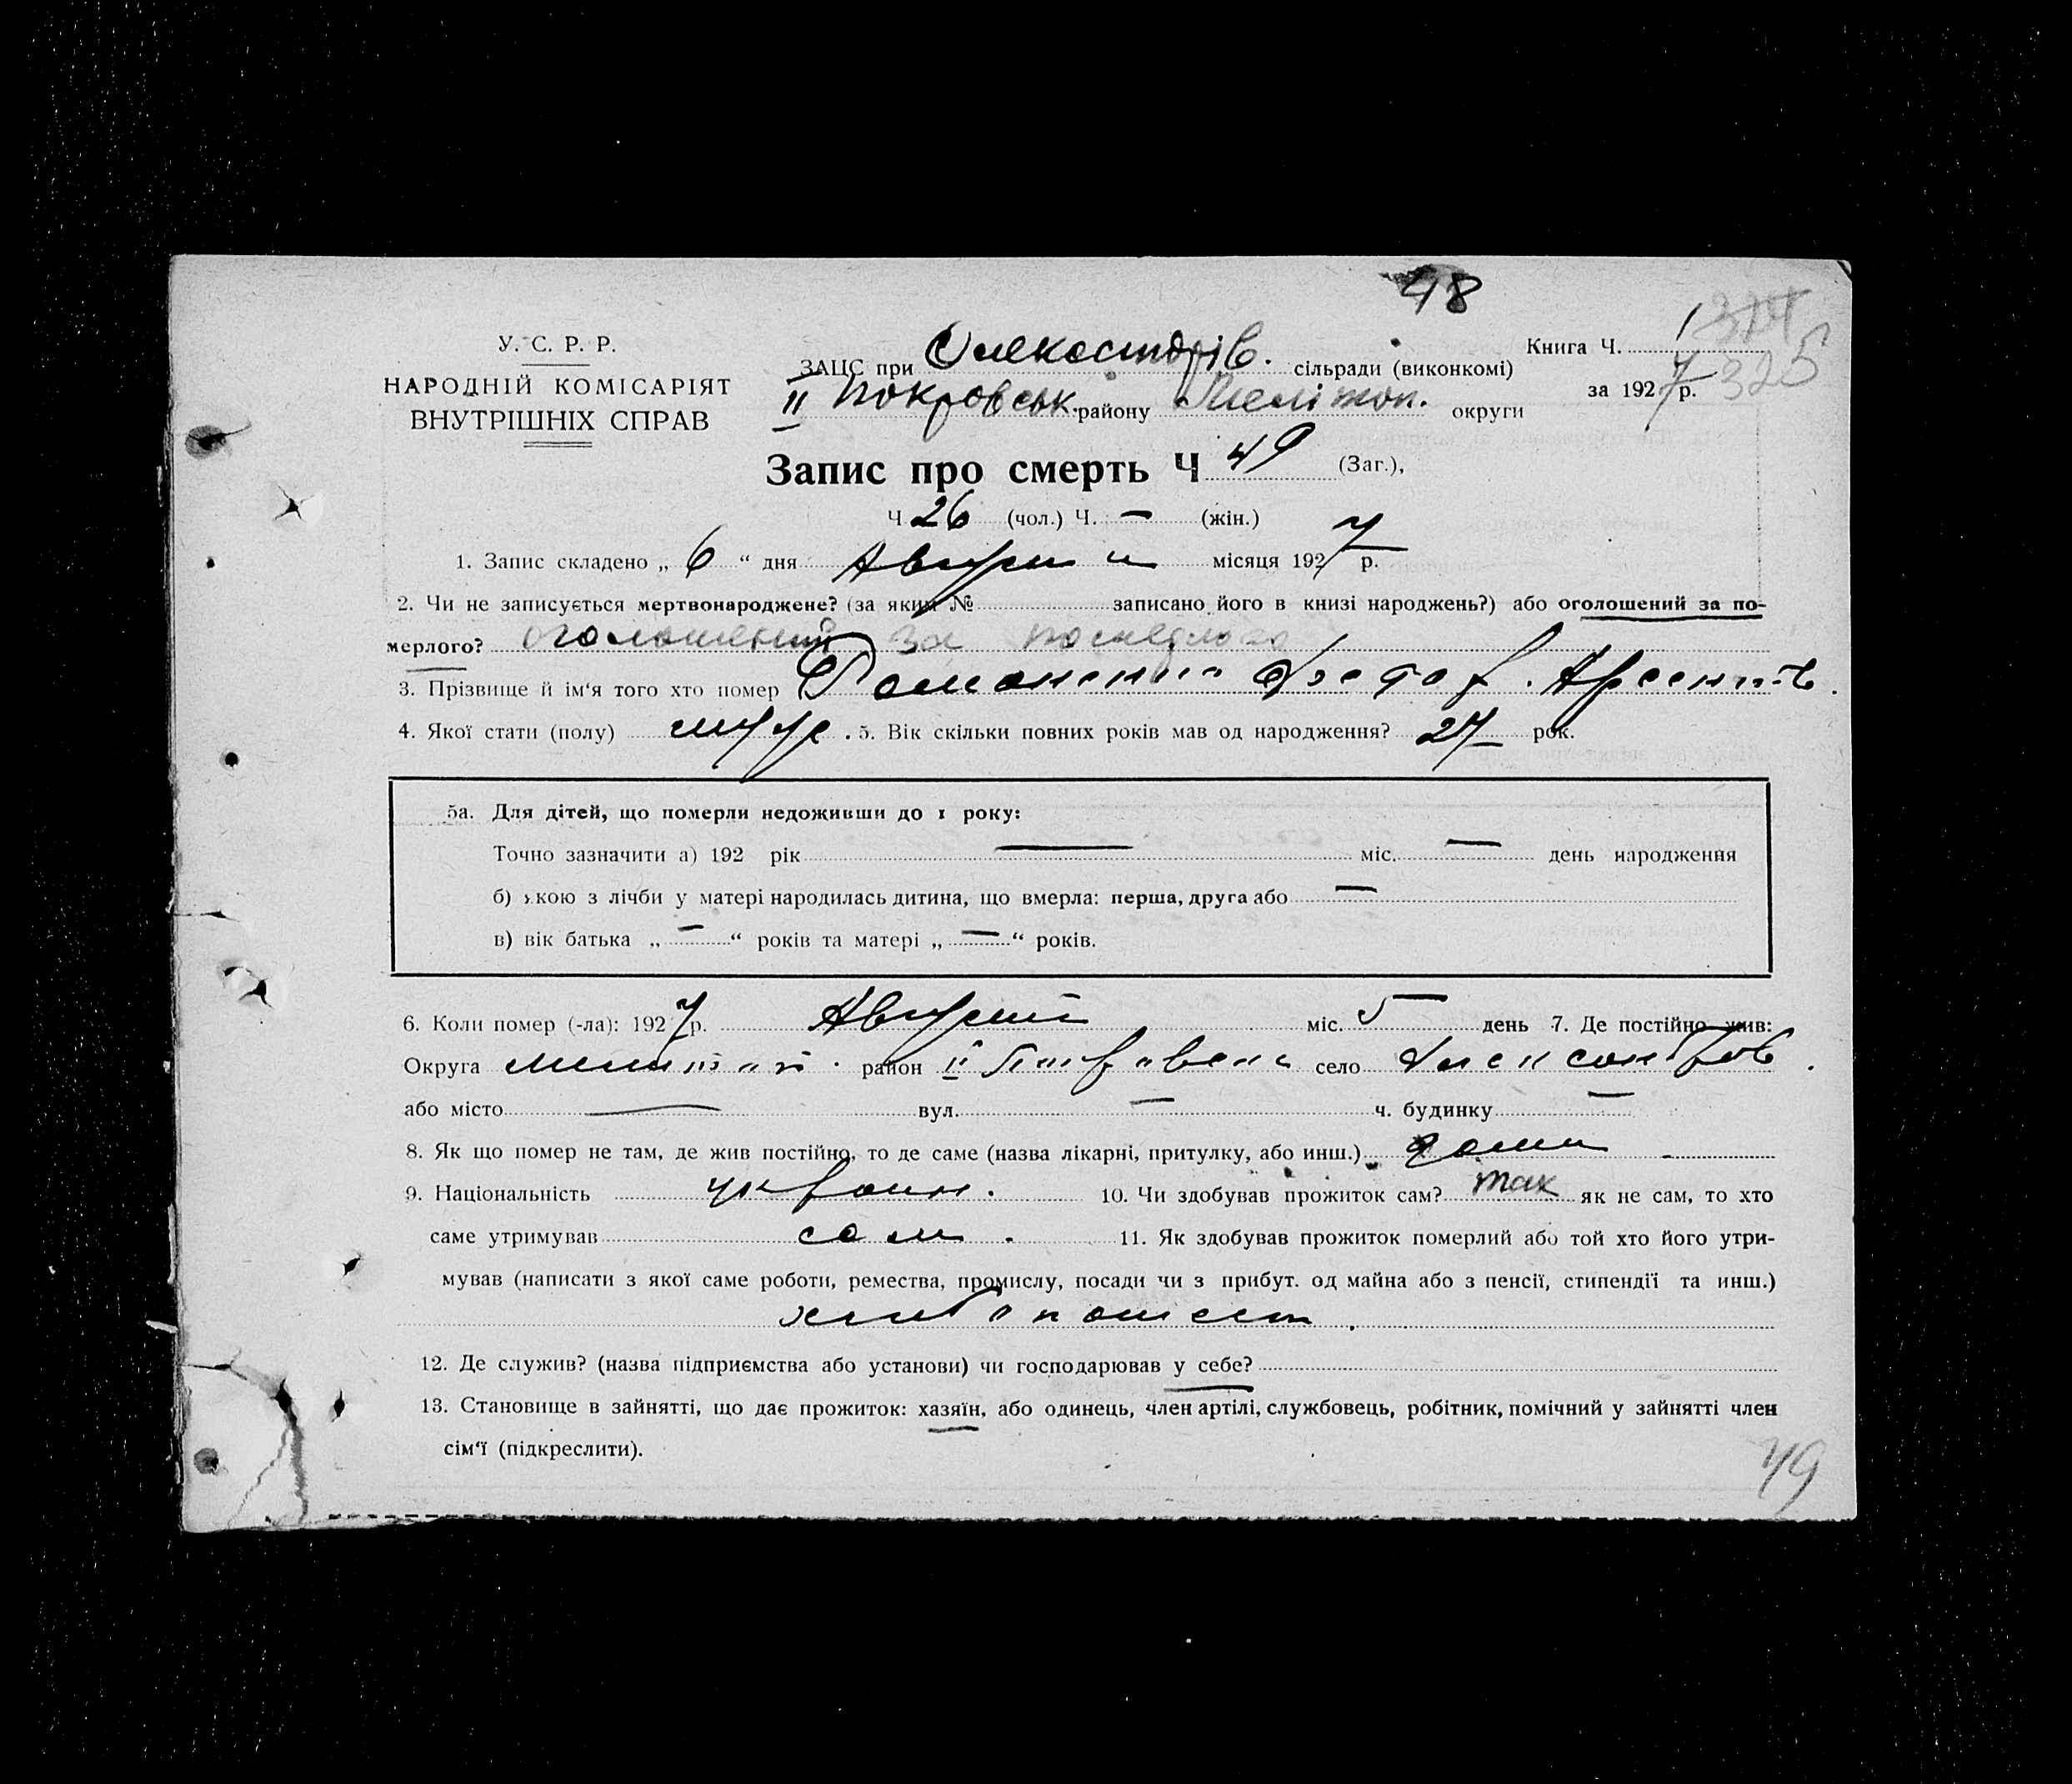 48
У. С. Р. Р.
НАРОДНІЙ КОМІСАРІЯТ
ВНУТРІШНІХ СПРАВ
ЗАЦС при Олександрів. сільради (виконкомі)
II Покровськ. району Мелітоп. округи
Книга Ч. 1 314
за 1927 р. 325
Запис про смерть Ч 49 (Заг.),
Ч 26 (чол.) Ч. — (жін.)
1. Запис складено „ 6 “ дня місяця 1927 р.
2. Чи не записується мертвонароджене? (за яким № записано його в книзі народжень?) або оголошений за по-
мерлого? оголошений за
3. Прізвище й ім'я того хто помер
4. Якої стати (полу) муж. 5. Вік скільки повних років мав од народження? 27 рок.
5а. Для дітей, що померли недоживши до 1 року:
Точно зазначити а) 192 рік — міс. — день народження
б) якою з лічби у матері народилась дитина, що вмерла: перша, друга або —
в) вік батька „ — “ років та матері „ — “ років.
6. Коли помер (-ла): 1927 р. міс. 5 день 7. Де постійно жив:
Округа район II село
або місто — вул. — ч. будинку —
8. Як що помер не там, де жив постійно, то де саме (назва лікарні, притулку, або инш.) дома
9. Національність україн. 10. Чи здобував прожиток сам? так як не сам, то хто
саме утримував сам. 11. Як здобував прожиток померлий або той хто його утри-
мував (написати з якої саме роботи, ремества, промислу, посади чи з прибут. од майна або з пенсії, стипендії та инш.)
12. Де служив? (назва підприємства або установи) чи господарював у себе?
13. Становище в зайнятті, що дає прожиток: хазяїн, або одинець, член артілі, службовець, робітник, помічний у зайнятті член
сім'ї (підкреслити).
49